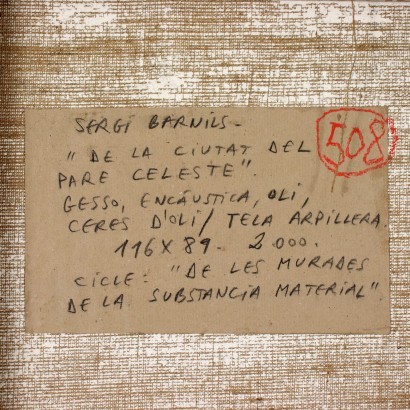 SERGI BARNILS-
508
"DE LA CIUTAT DEL
PARE CELESTE".
GESSO, ENCÁUSTICA, OLI,
CERES D'OLI/ TELA ARPILLERA.
116X89. 2000.
CICLE: "DE LES MURADES
DE LA SUBSTANCIA MATERIAL".